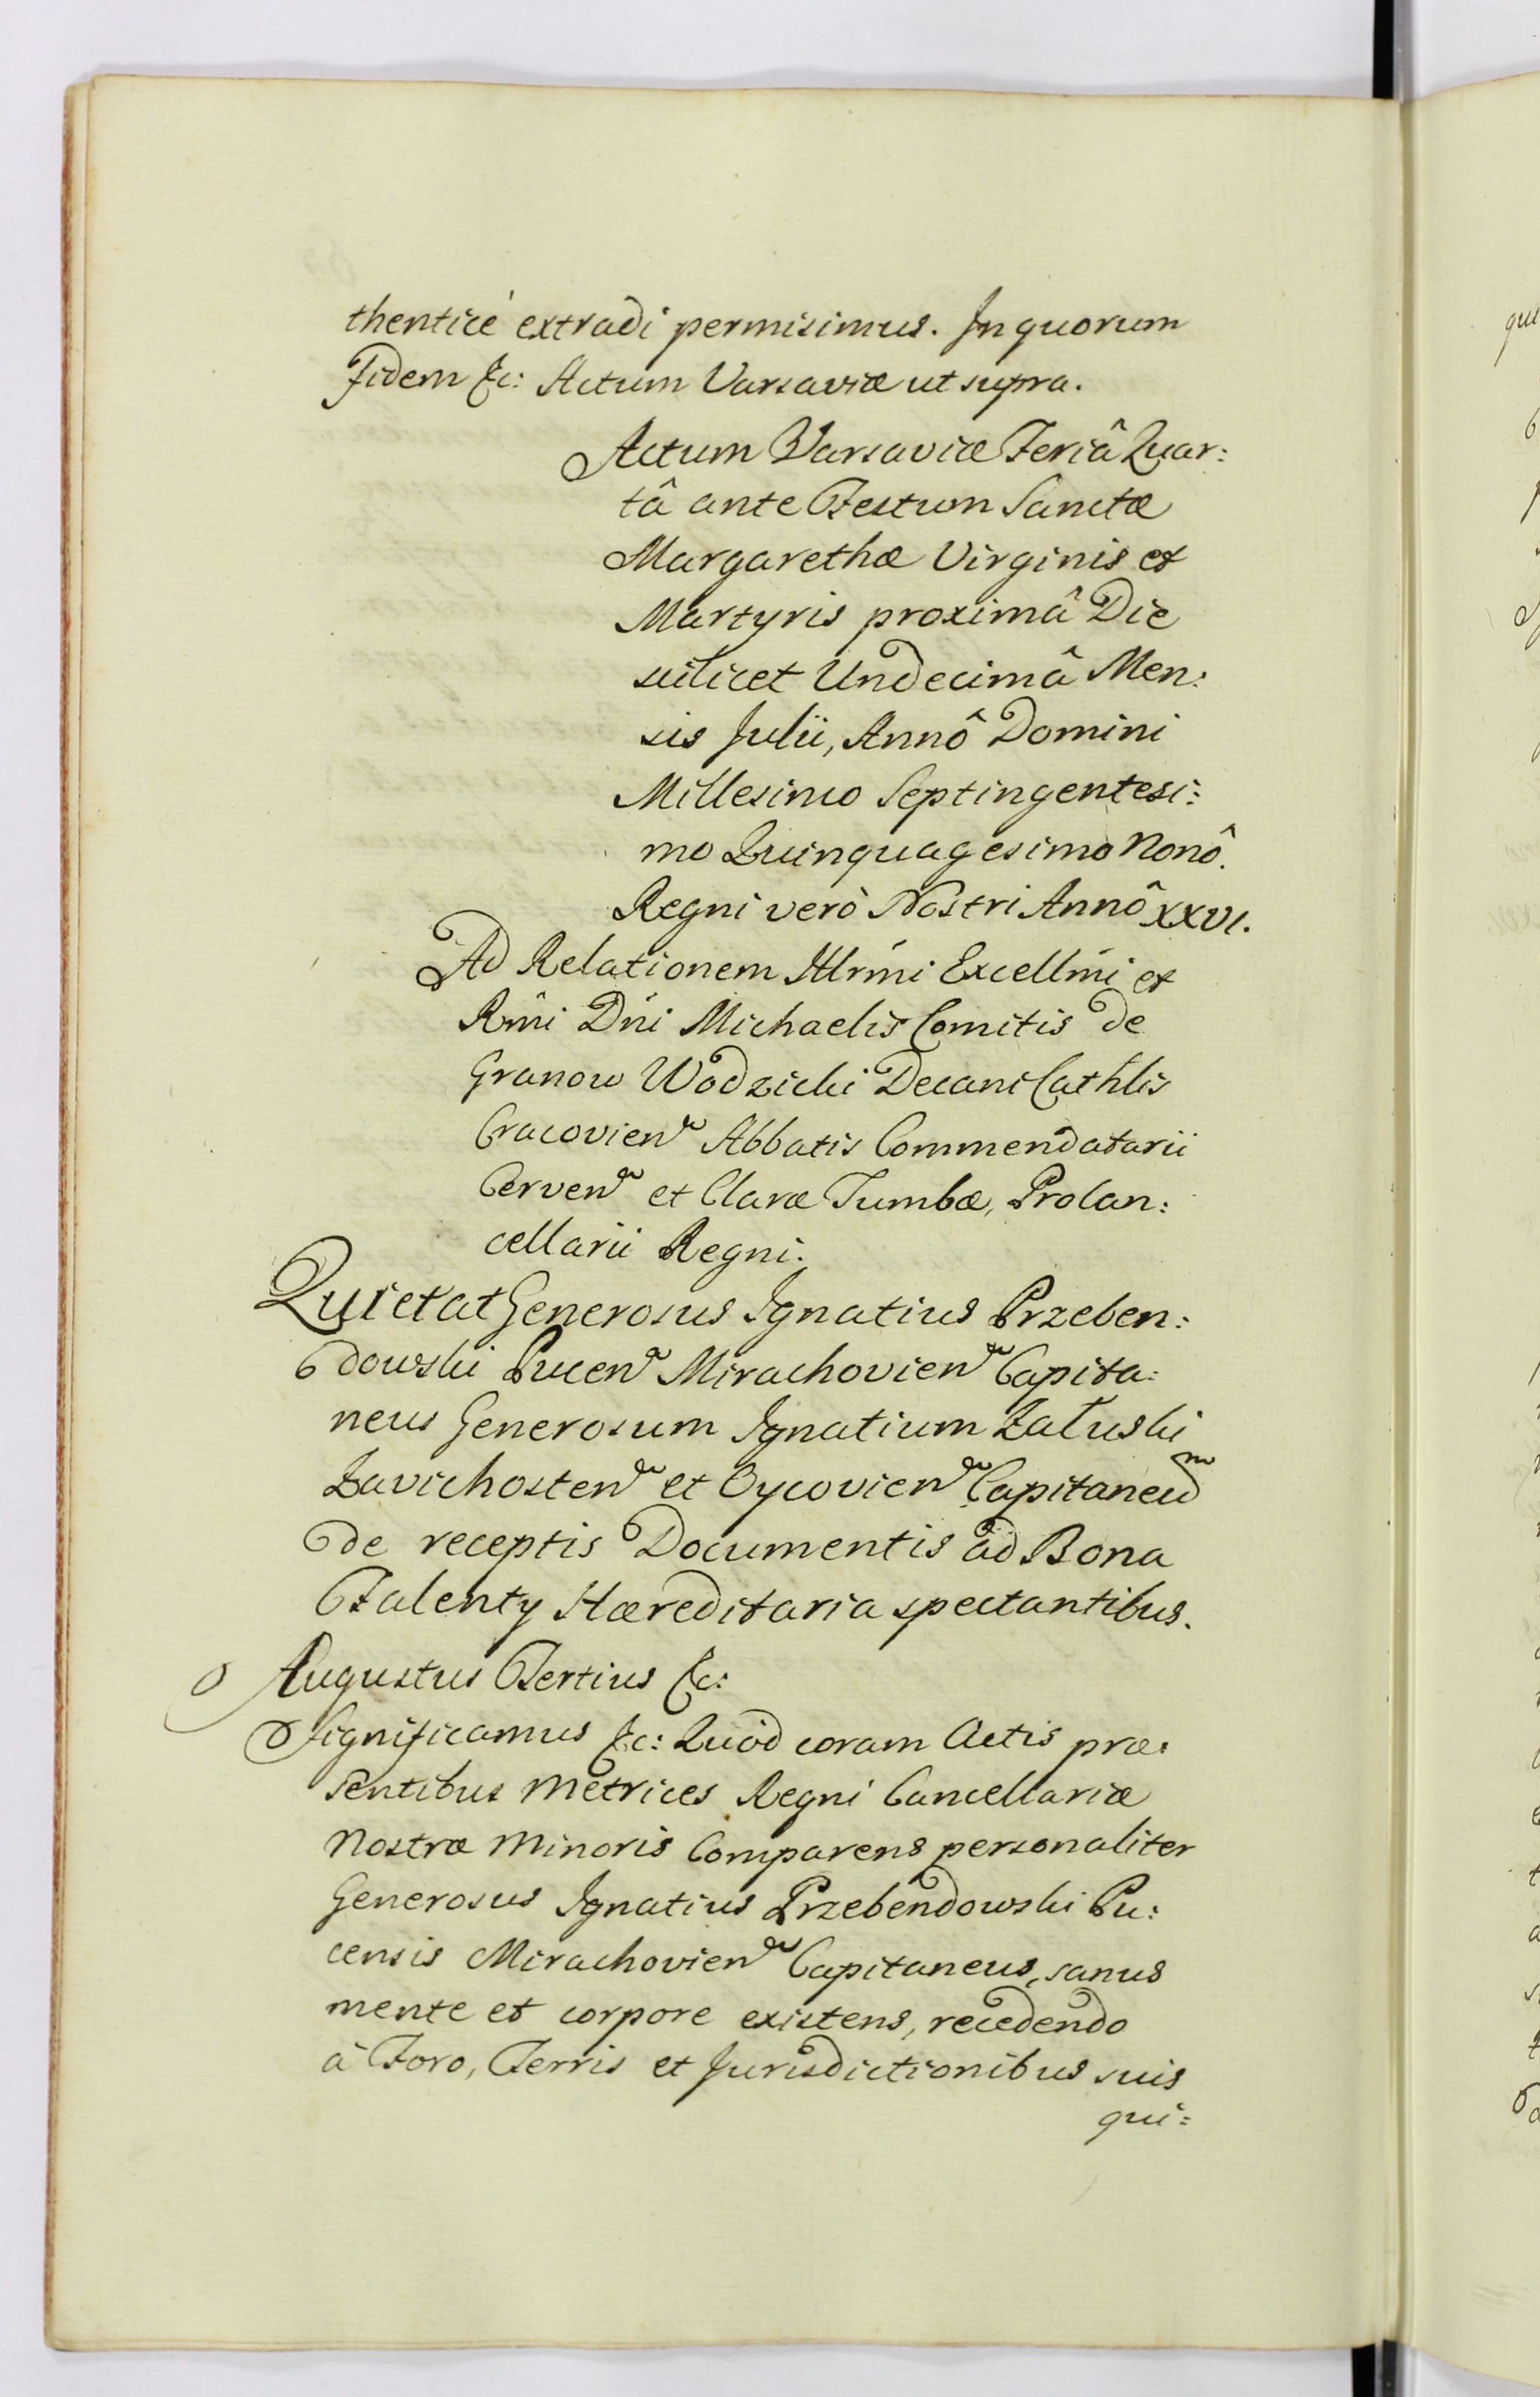 thenticè extradi permisimus. In quorum
Fidem &c: Actum Varsaviæ ut supra.
Actum Varsaviæ Feriâ Quar:
tâ ante Festum Sanctæ
Margarethæ Virginis et
Martyris proximâ Die
scilicet Undecimâ Men:
sis Julii, Annô Domini
Millesimo Septingentesi:
mo Quinquagesimo Nonô.
Regni verò Nostri Annô XXVI.
Ad Relationem Illrmi Excellmi et
Rmi Dni Michaelis Comitis de
Granow Wodzicki Decani Cathlis
Cracovien Abbatis Commendatarii
Cerven et Claræ Tumbæ, Procan:
cellarii Regni.
Quietat Generosus Ignatius Przeben:
dowski Pucen Mirachovien Capita:
neus Generosum Ignatium Załuski
Zavichosten et Oycovien Capitaneum
de receptis Documentis ad Bona
Falenty Hæreditaria spectantibus.
Augustus Tertius &c:
Significamus &c: Quòd coram Actis præ:
sentibus Metrices Regni Cancellariæ
Nostræ Minoris Comparens personaliter
Generosus Ignatius Przebendowski Pu:
censis Mirachovien Capitaneus, sanus
mente et corpore existens, recedendo
à Foro, Terris et Jurisdictionibus suis
qui: